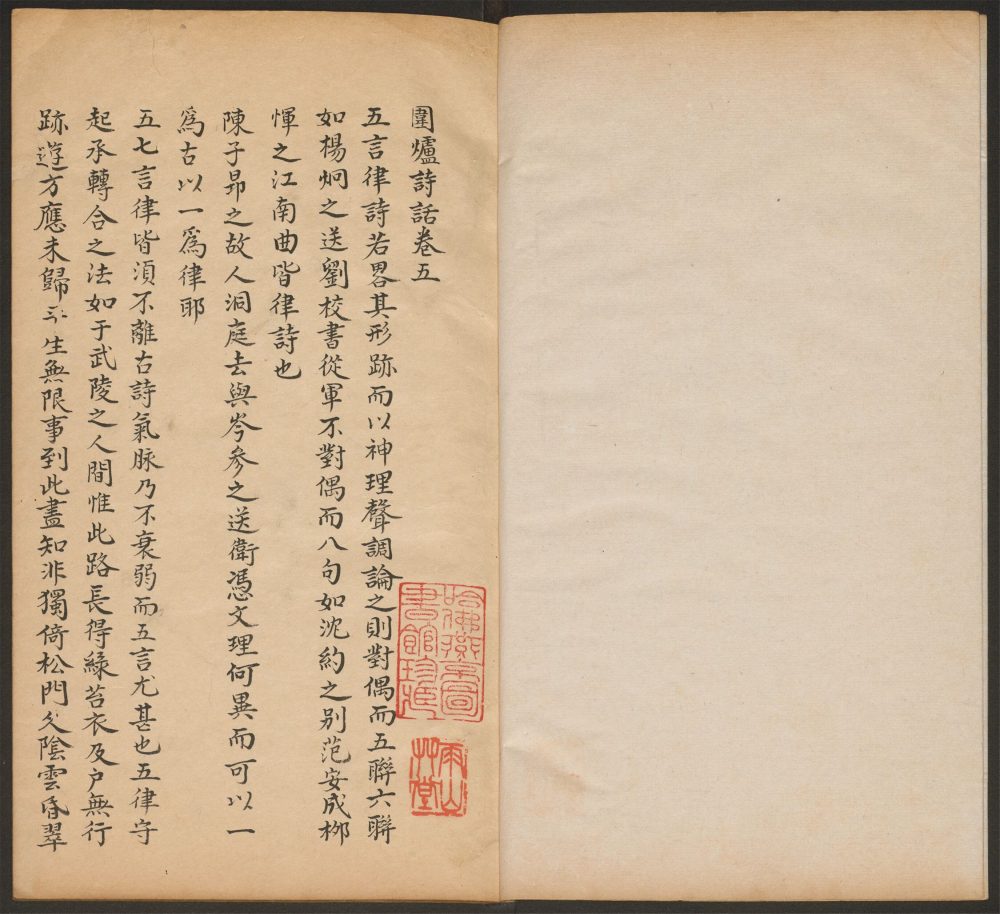 圍爐詩話卷五
五言律詩若畧其形跡而以神理聲調論之則對偶而五聯六聯
如楊炯之送劉校書從軍不對偶而八句如沈約之别范安成柳
惲之江南曲皆律詩也
陳子昂之故人洞庭去與岑參之送衛憑文理何異而可以一
爲古以一爲律耶
五七言律皆須不離古詩氣脉乃不衰弱而五言尤甚也五律守
起承轉合之法如于武陵之人間惟此路長得綠苔衣及户無行
跡遊方應未歸平生無限事到此盡知非獨倚松門久陰雲昏翠
哈佛燕京圖
書館珍藏
雨山
草堂